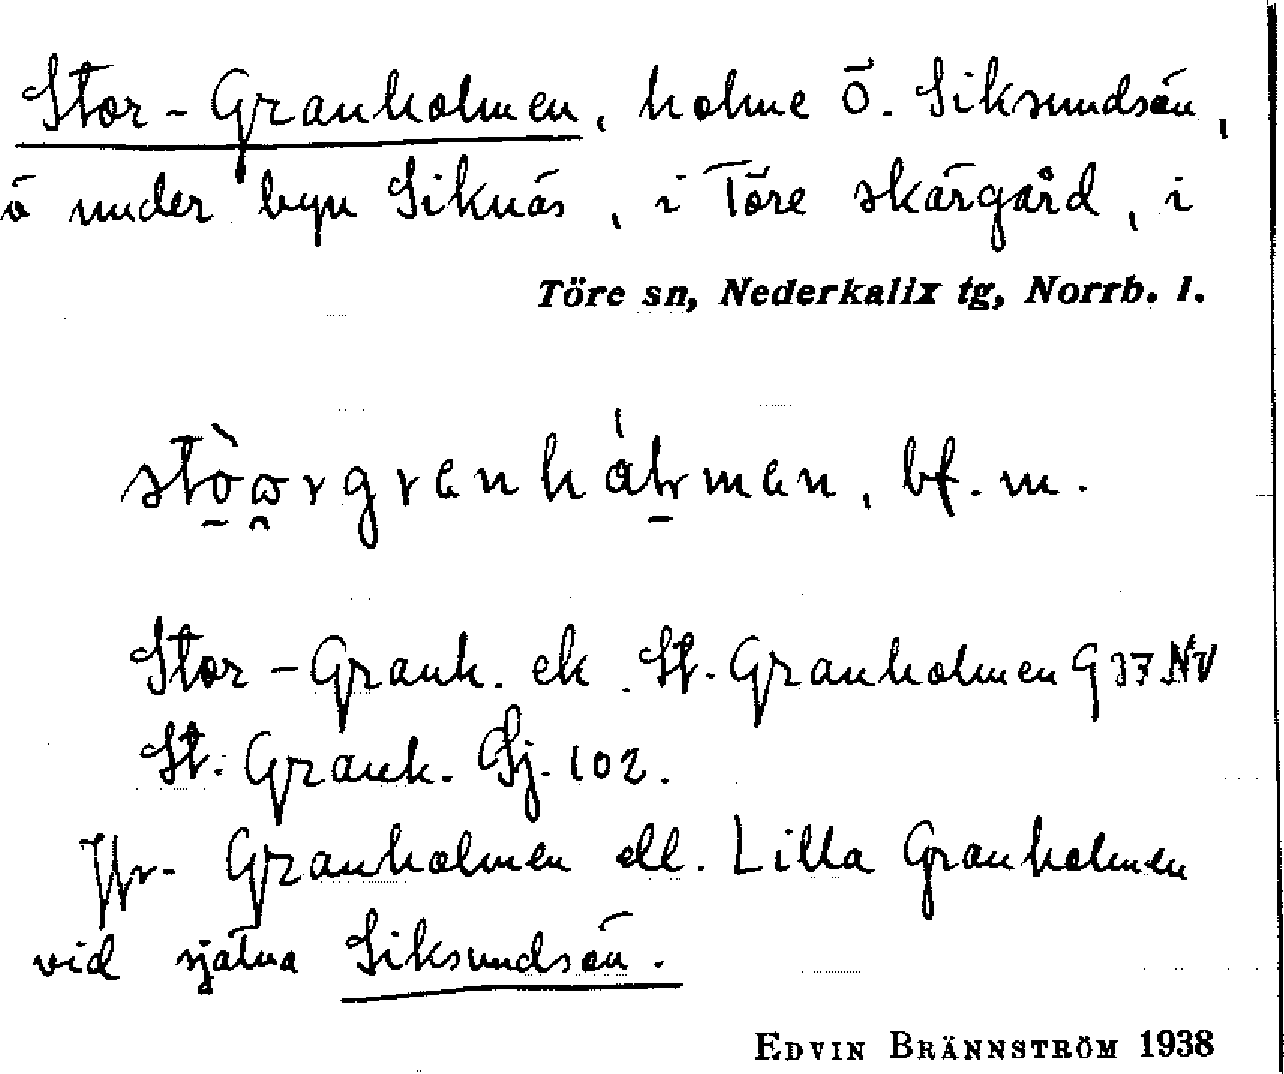 Stor-Granholmen, holme ö. Siksundsön,
ö under byn Siknäs, i Töre skärgård, i
Töre sn, Nederkalix tg, Norrb. l.
bf. m.
Stor-Granh. ek. St. Granholmen G 37 NV
St. Granh. Sj. 102.
Jfr. Granholmen ell. Lilla Granholmen
vid själva Siksundsön.
EDVIN BRÄNNSTRÖM 1938